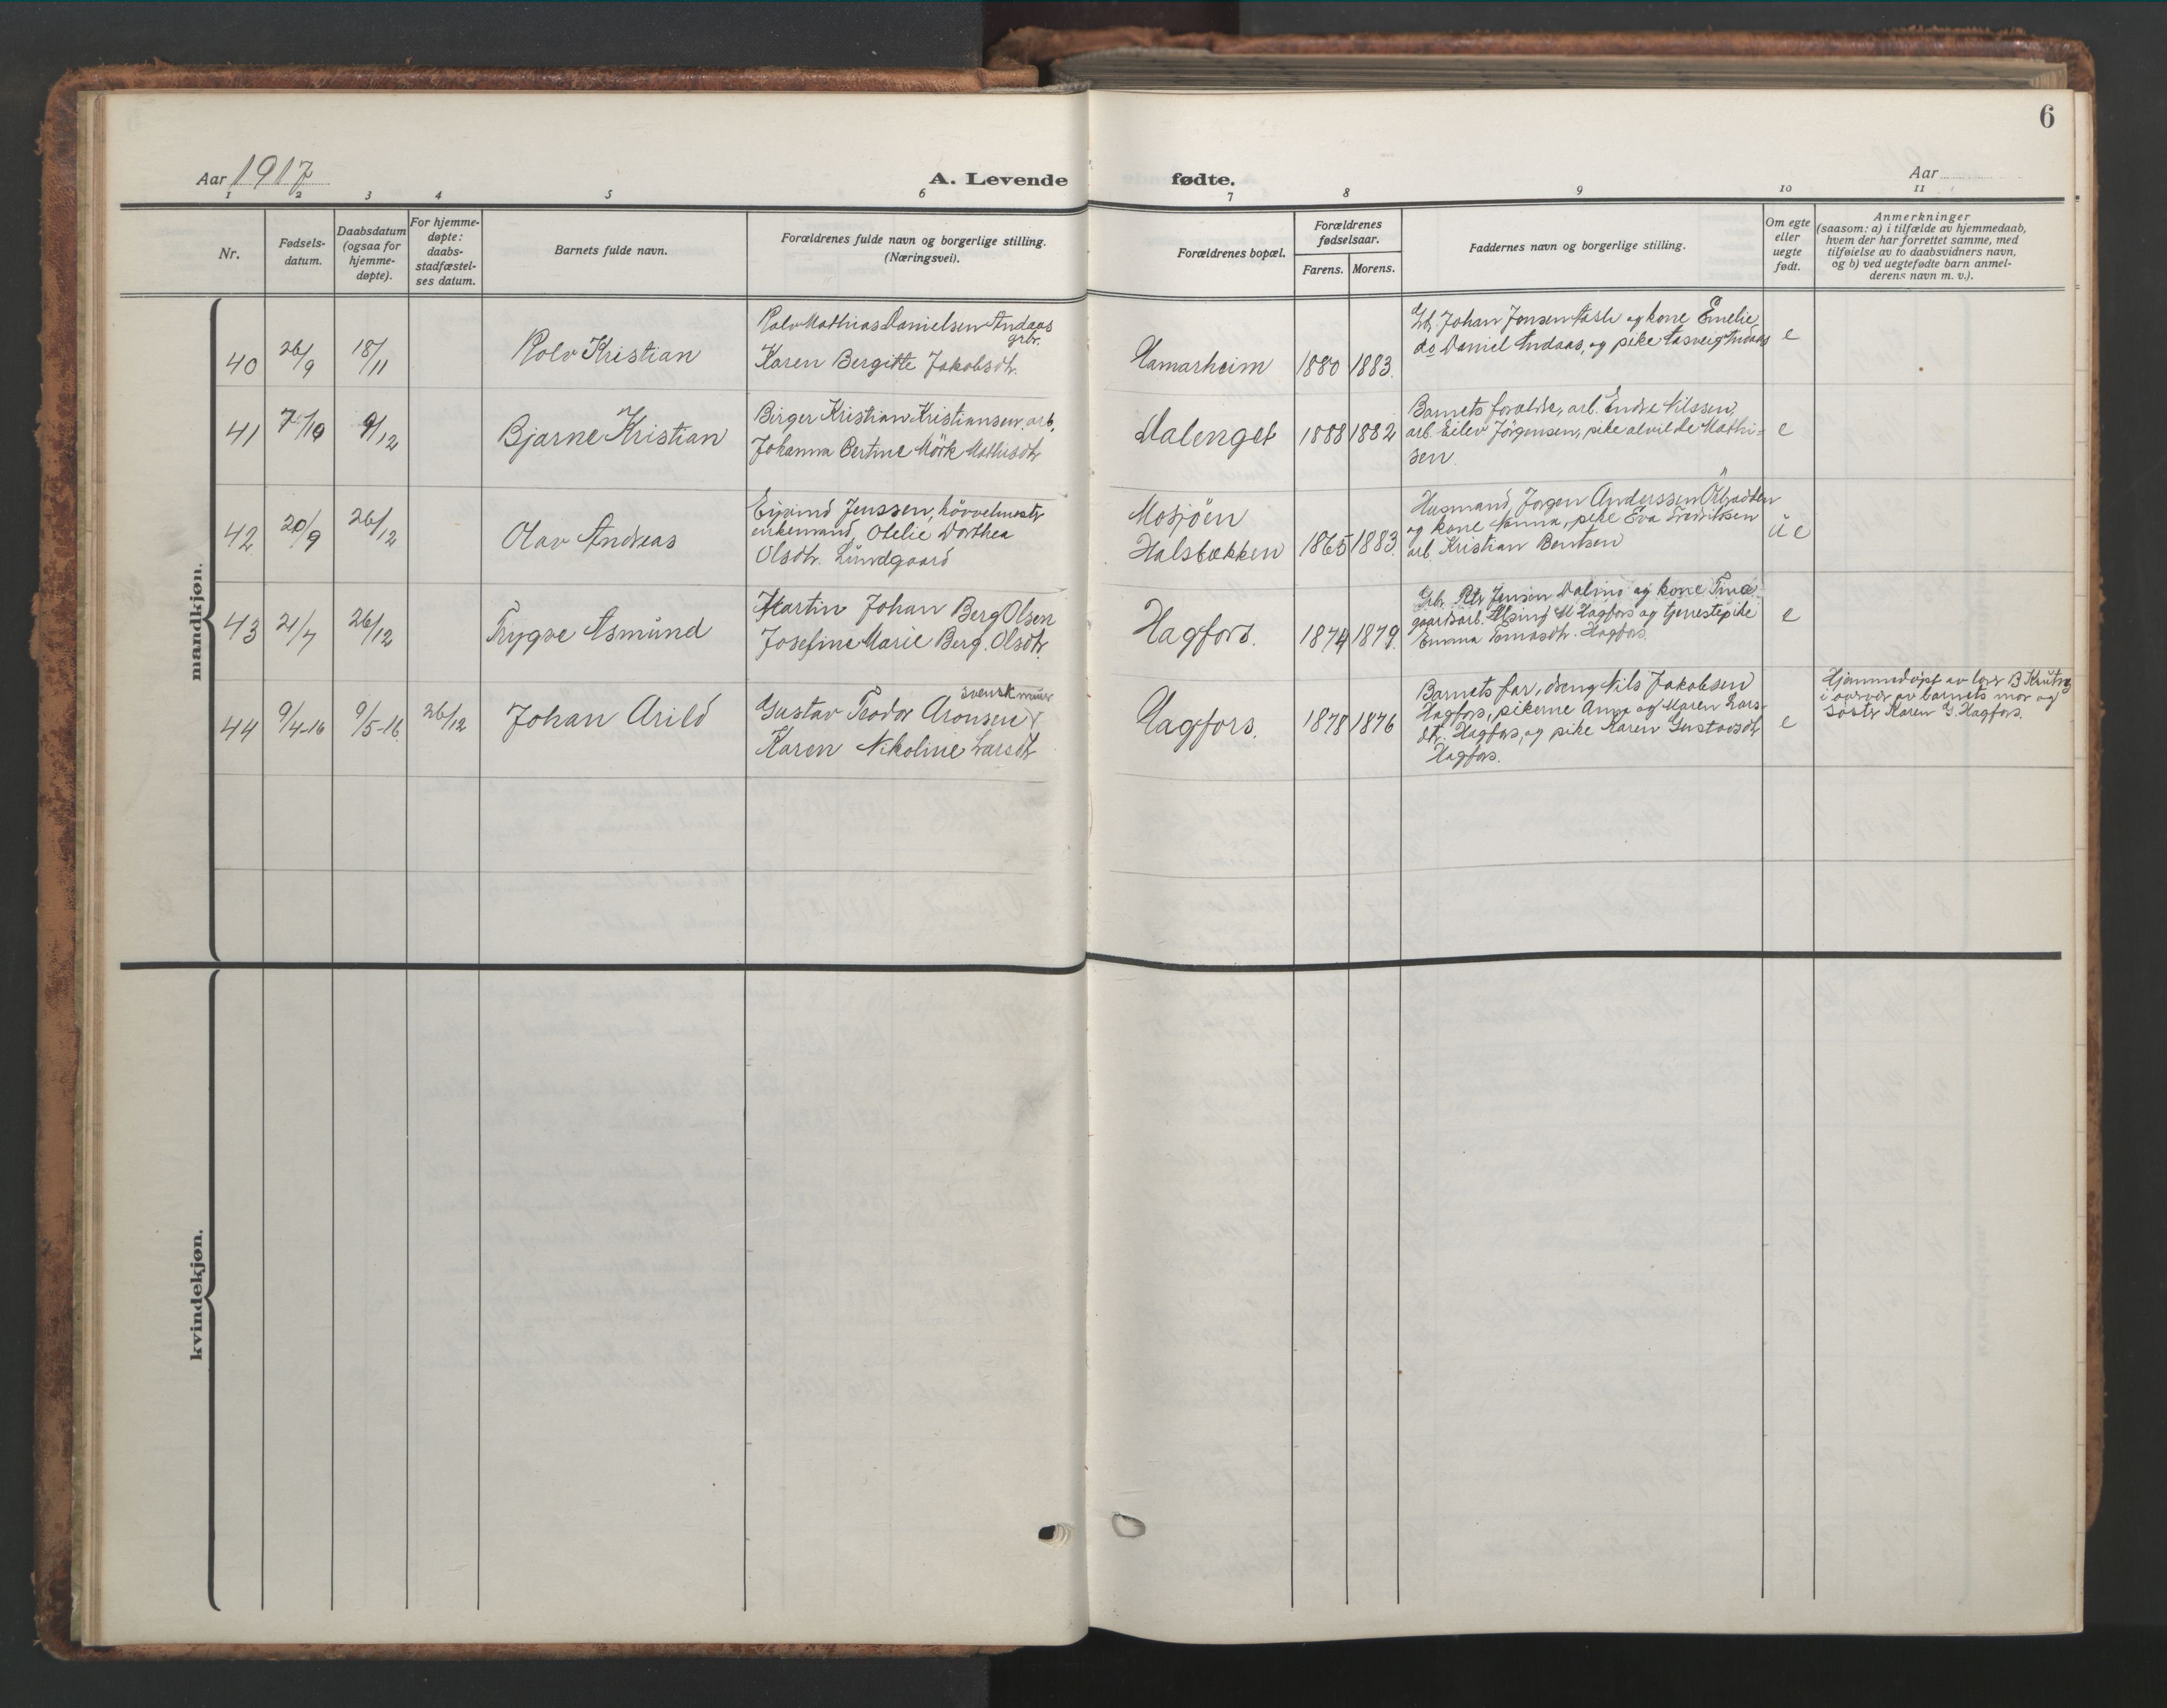 6
Aar 1917
A. Levende fødte.
Aar
1 2 3 4 5 6 7 8 9 10 11
Nr.
Fødsels-
datum.
Daabsdatum
(ogsaa for
hjemme-
døpte).
For hjemme-
døpte:
daabs-
stadfæstel-
ses datum.
Barnets fulde navn.
Forældrenes fulde navn og borgerlige stilling.
(Næringsvei).
Forældrenes bopæl.
Forældrenes
fødselsaar.
Farens. Morens.
Faddernes navn og borgerlige stilling.
Om egte
eller
uegte
født.
Anmerkninger
(saasom: a) i tilfælde av hjemmedaab,
hvem der har forrettet samme, med
tilføielse av to daabsvidners navn,
og b) ved uegtefødte barn anmel-
derens navn m. v.).
mandkjøn.
40
26/9
18/11
Rolv Kristian
Rolv Mathias Danielsen Andaas
grbr.
Karen Bergitte Jakobsdtr.
Hamarheim
1880 1883.
Johan Jensen og kone Emelie
do Daniel Andaas, og pike Andaas
e
41
7/10
9/12
Bjarne Kristian
Birger Kristian Kristiansen, arb.
Johanna Bertine Mörk Mathisdtr
Dalenget
1888 1882
Barnets forældre, arb. Endre Nilssen,
arb. Eilev Jörgensen, pike Alvilde Mathi-
sen.
e
42
20/9
26/12
Olav Andreas
Jenssen, hövvelmestr
enkemand, Otelie Dorthea
Olsdtr. Lundgaard
Mosjöen
Halsbækken
1865 1883.
Husmand Jorgen Anderssen
og kone Anna, pike Eva Fredriksen
arb. Kristian Bentsen
ue
43
21/7
26/12
Trygve Asmund
Martin Johan Berg Olsen
Josefine Marie Berg. Olsdtr.
Hagfors.
1874 1879.
Grbr. Petr Jensen Dalmo og kone Tina
gaardsarb. M Hagfors og tjenestepike
Emma Tomasdtr. Hagfors.
e
44
9/4-16
9/5-16.
26/12
Johan Arild
svensk murer
Gustav Teodor Aronsen
Karen Nikoline Larsdtr
Hagfors.
1878 1876
Barnets far, dreng Nils Jakobsen
Hagfors, pikerne Anna og Maren Lars-
dtr. Hagfors, og pike Karen Gustavsdtr
Hagfors.
e
Hjemmedöpt av lærer B
i overvær av barnets mor og
söster Karen G. Hagfors.
kvindekjøn.